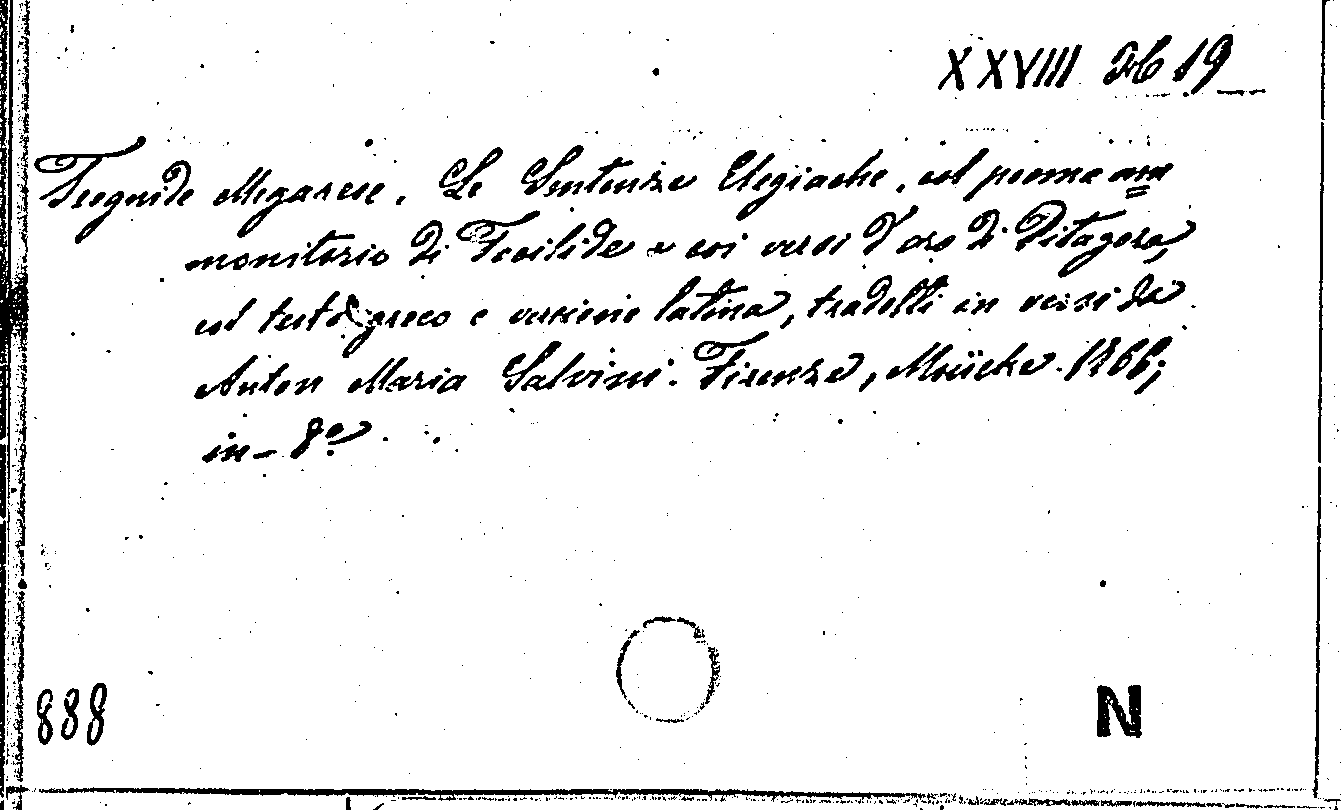 XXVIII Hb 19
Teognide Megarese. Le Sentenze Elegiache, col poema am
monitorio di Focilide e coi versi d'oro di Pitagora,
col testo greco e versione latina, tradotti in versi da
Anton Maria Salvini. Firenze, Moücke. 1766;
in-8º
888
N